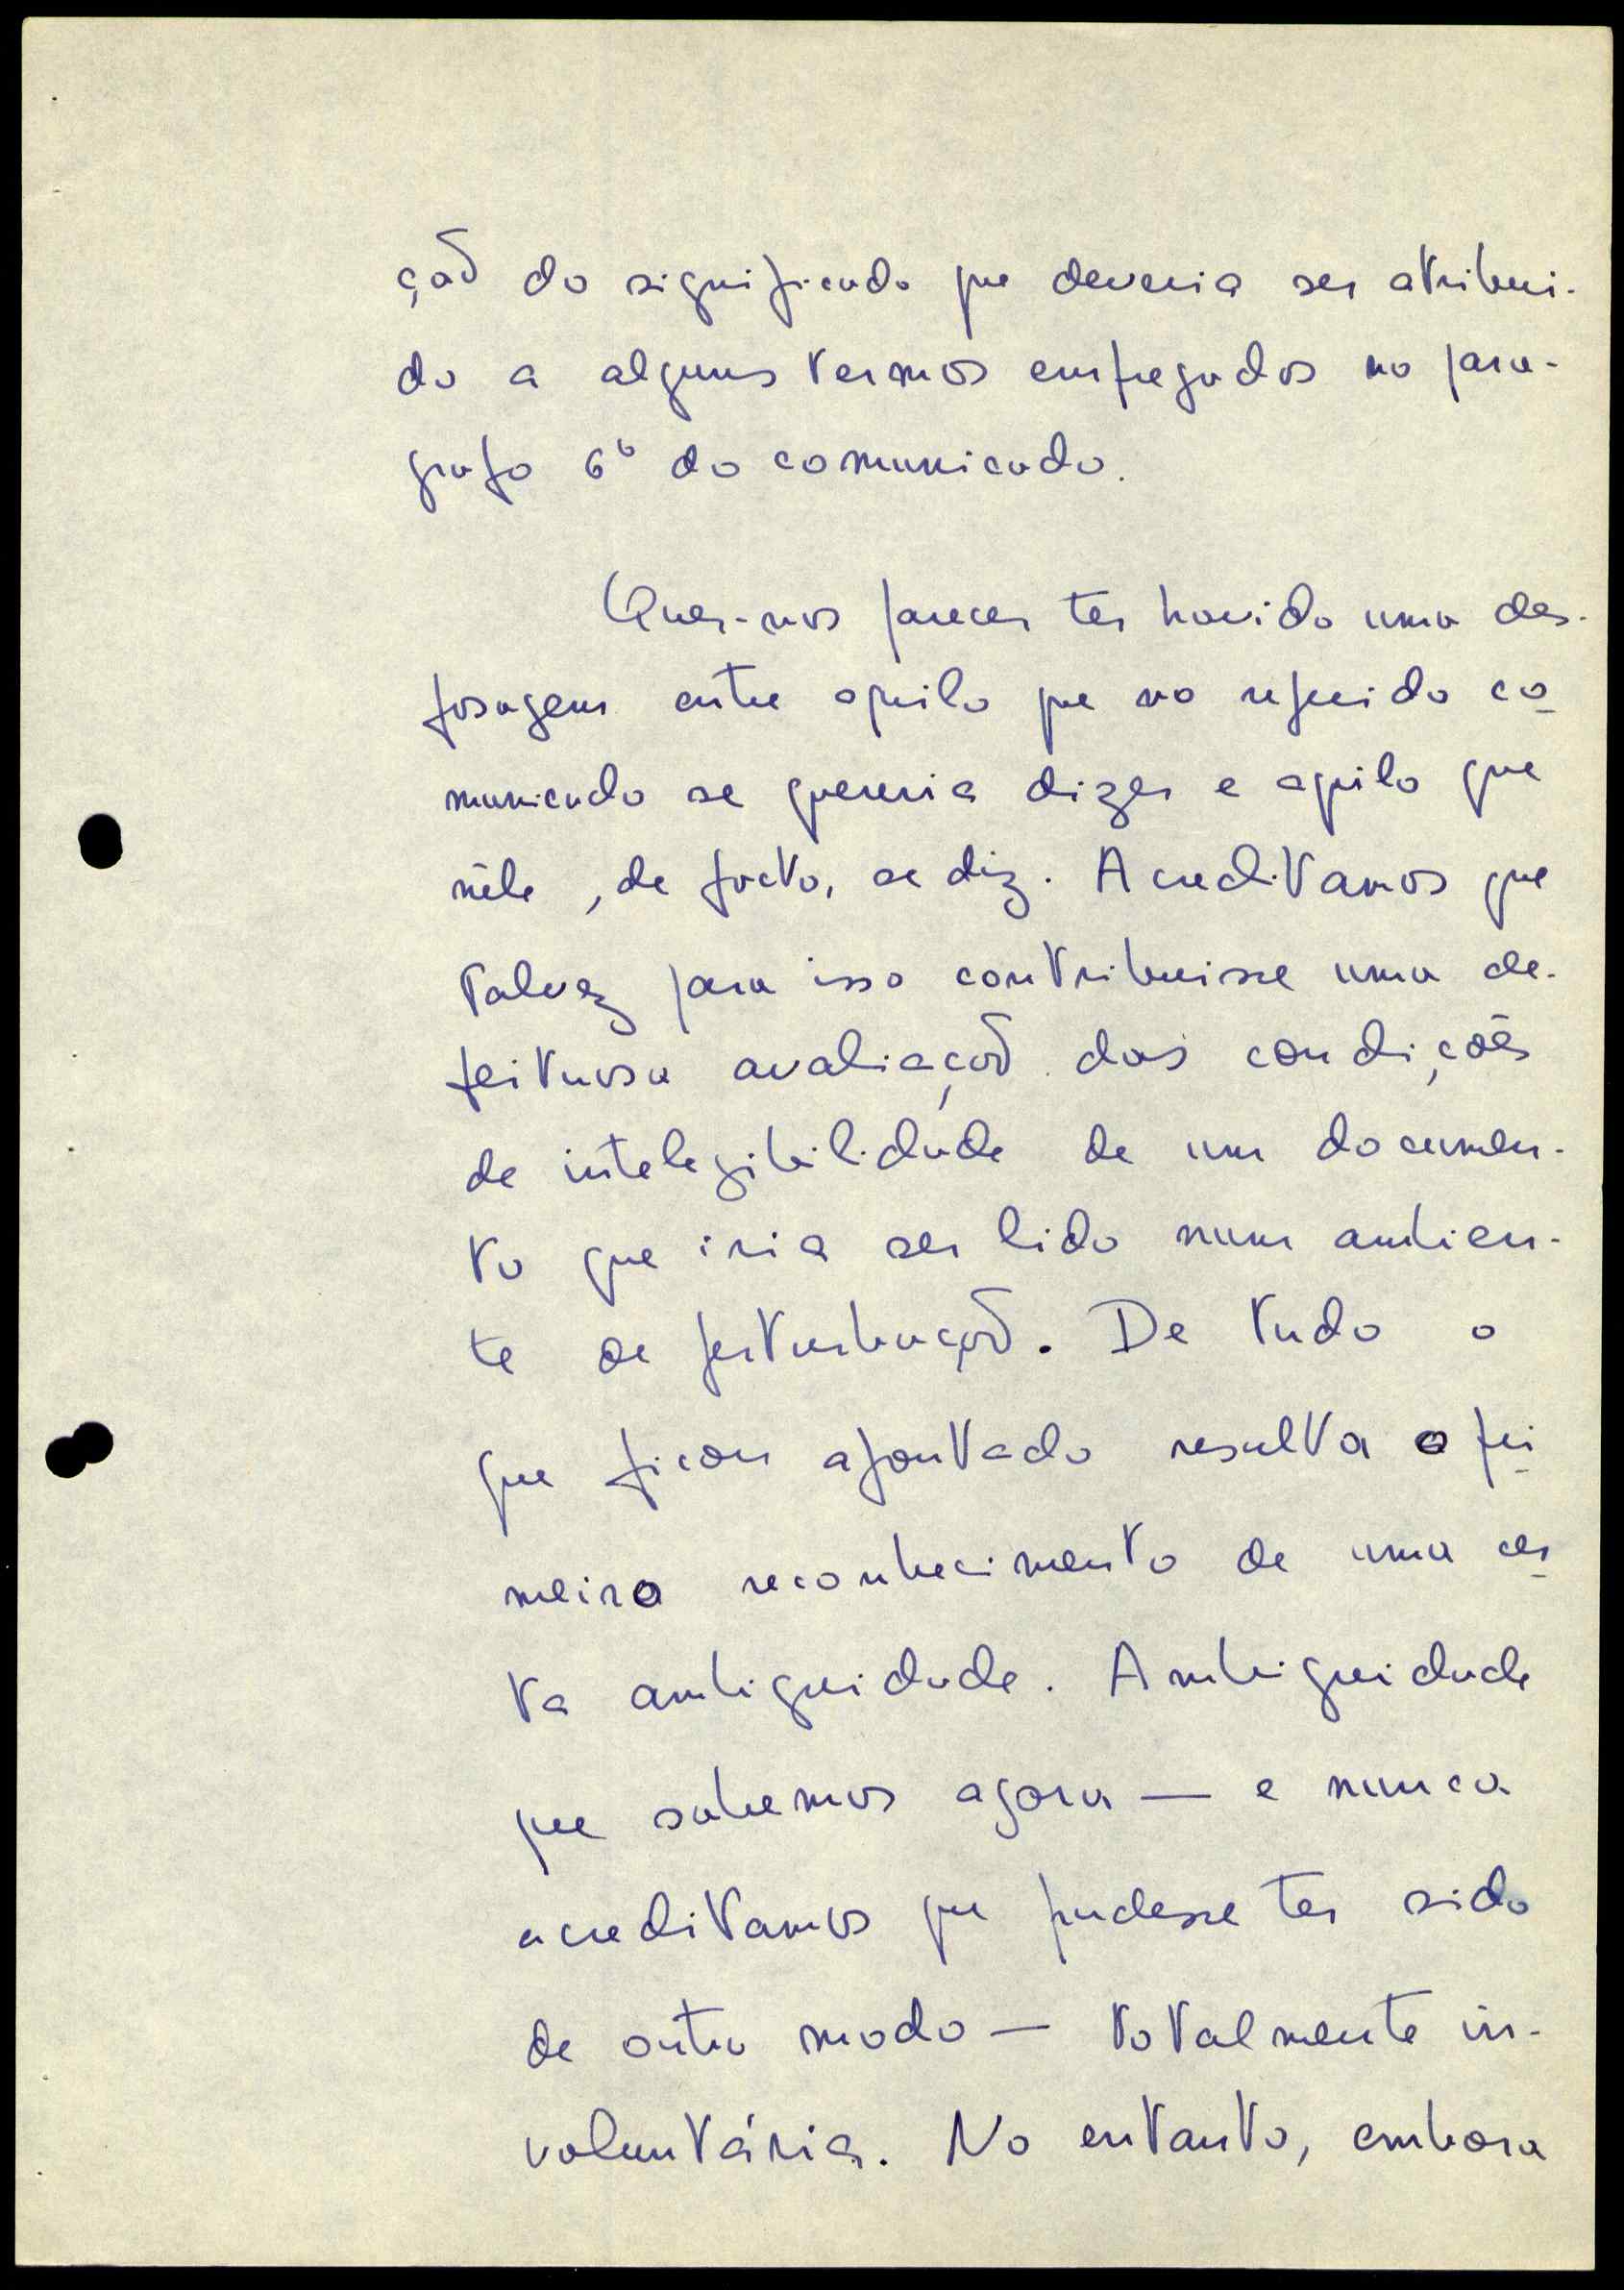 ção do significado que deveria ser atribui-
do a alguns termos empregados no para-
grafo 6º do comunicado.
Quer-nos parecer ter havido uma des-
fasagem entre aquilo que no referido co-
municado se quereria dizer e aquilo que
nêle, de facto, se diz. Acreditamos que
talvez para isso contribuisse uma de-
feituosa avaliação das condições
de intelegibilidade de um documen-
to que iria ser lido num ambien-
te de perturbação. De tudo o
que ficou apontado resulta o pri-
meiro reconhecimento de uma cer-
ta ambiguidade. Ambiguidade
que sabemos agora — e nunca
acreditamos que pudesse ter sido
de outro modo — totalmente in-
voluntária. No entanto, embora